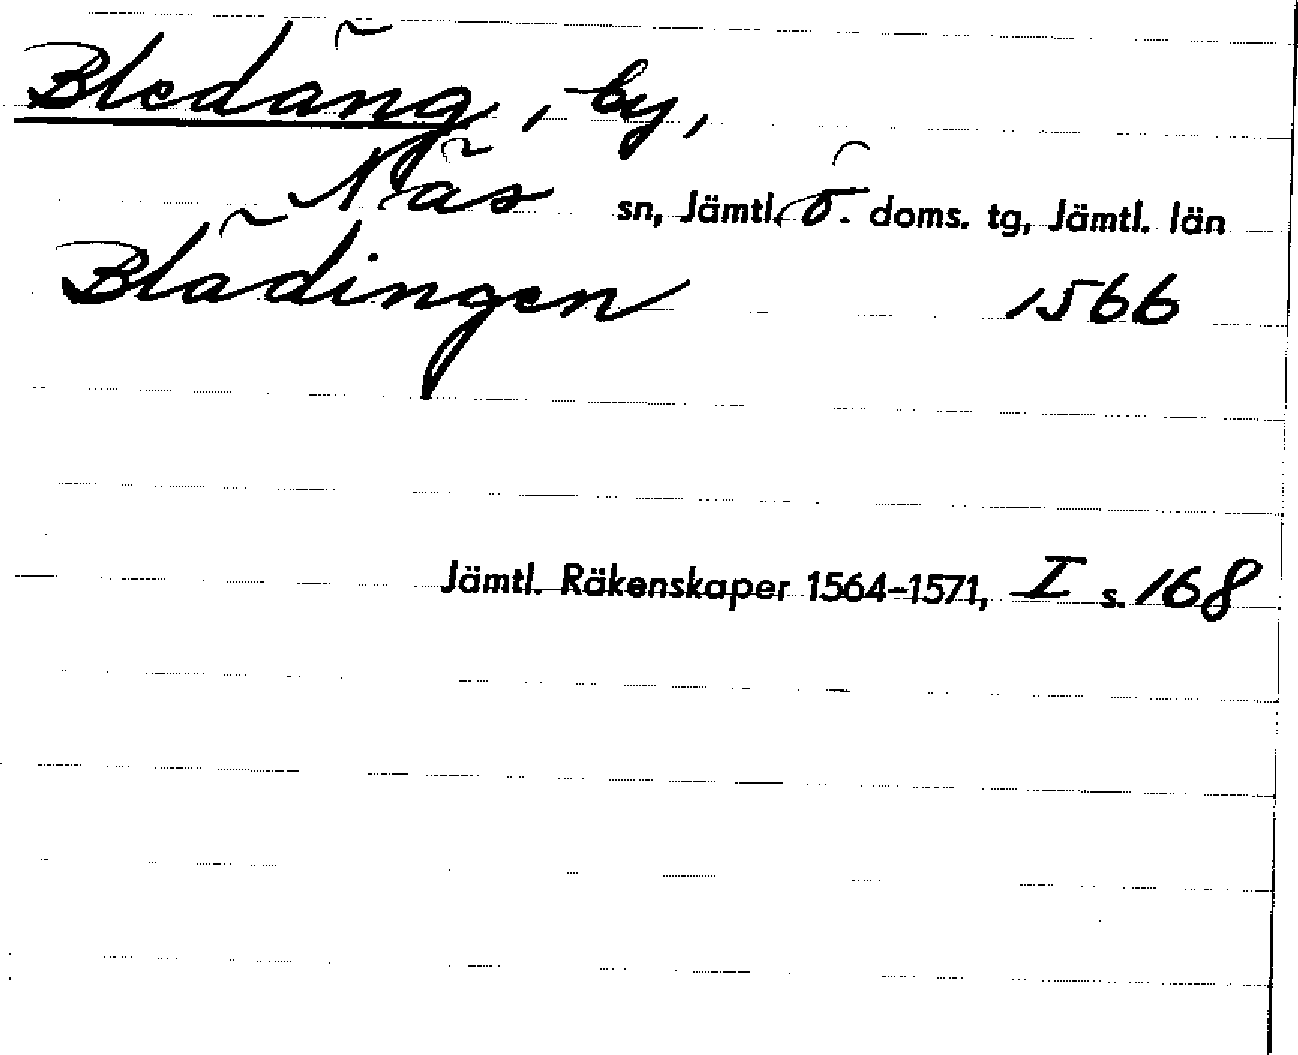 Bledäng, by,
Näs sn, Jämtl. ö. doms. tg, Jämtl. län
Blädingen 1566
Jämtl. Räkenskaper 1564–1571, I s. 168